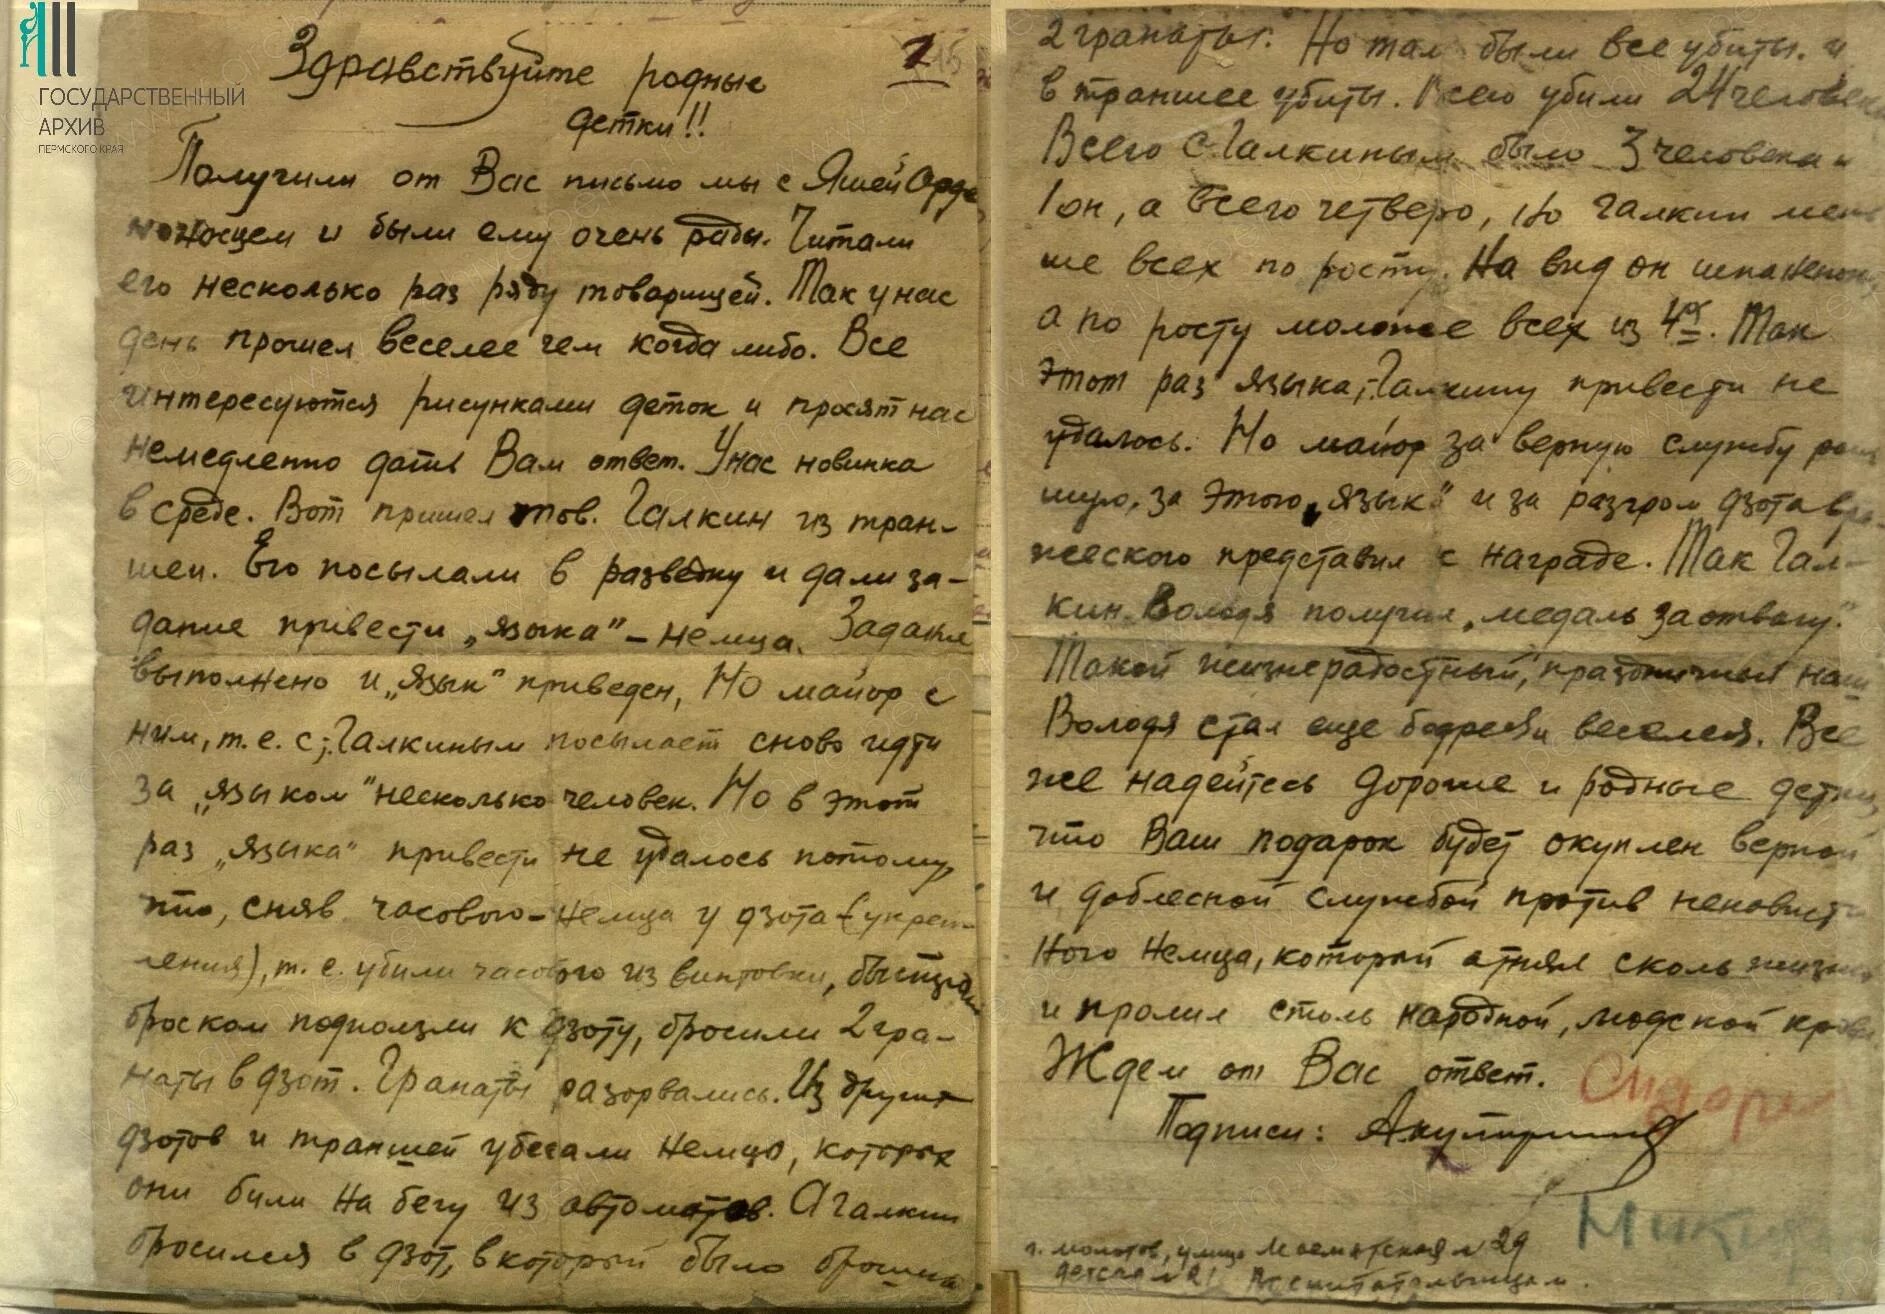 ГОСУДАРСТВЕННЫЙ
АРХИВ
ПЕРМСКОГО КРАЯ
1
Здравствуйте родные
детки!!
Получили от Вас письмо мы с Яшей Орде
носцем и были ему очень рады. Читали
его несколько раз ряду товарищей. Так у нас
день прошел веселее чем когда либо. Все
интересуются рисунками деток и просят нас
немедленно дать Вам ответ. У нас новинка
в среде. Вот пришел тов. Галкин из тран-
шеи. Его посылали в разведку и дали за-
дание привести „языка" - немца. Задание
выполнено и „язык" приведен, Но майор с
ним, т.е. с т. Галкиным посылает сново идти
за „языком" несколько человек. Но в этот
раз „языка" привести не удалось потому,
что, сняв часового - немца у дзота (укреп-
ления), т.е. убили часового из винтовки, быстрым
броском подползли к дзоту, бросили 2 гра-
наты в дзот. Гранаты разорвались. Из других
дзотов и траншей убегали немцы, которых
они били на бегу из автоматов. А Галкин
бросился в дзот, в который было брошено
2 гранаты. Но там были все убиты. и
в траншее убиты. Всего убили 24 человека
Всего с Галкиным было 3 человека и
1 он, а всего четверо, но Галкин мень
ше всех по росту. На вид он
а по росту моложе всех из 4х. Так
этот раз языка т. Галкину привести не
удалось. Но майор за верную службу
за этого „язык" и за разгром дзота вра-
жеского представил к награде. Так Гал-
кин Володя получил „медаль за отвагу."
Такой жизнерадостный, праздничный наш
Володя стал еще бодрей и веселея. Все
же надейтесь дороже и родные детки,
что Ваш подарок будет окуплен верной
и доблесной службой против ненавист
ного немца, который отнял сколь жизней
и пролил столь народной, людской крови
Ждем от Вас ответ.
Подписи:
г. Молотов, улица № 29
детсад № 21 Воспитательницам.